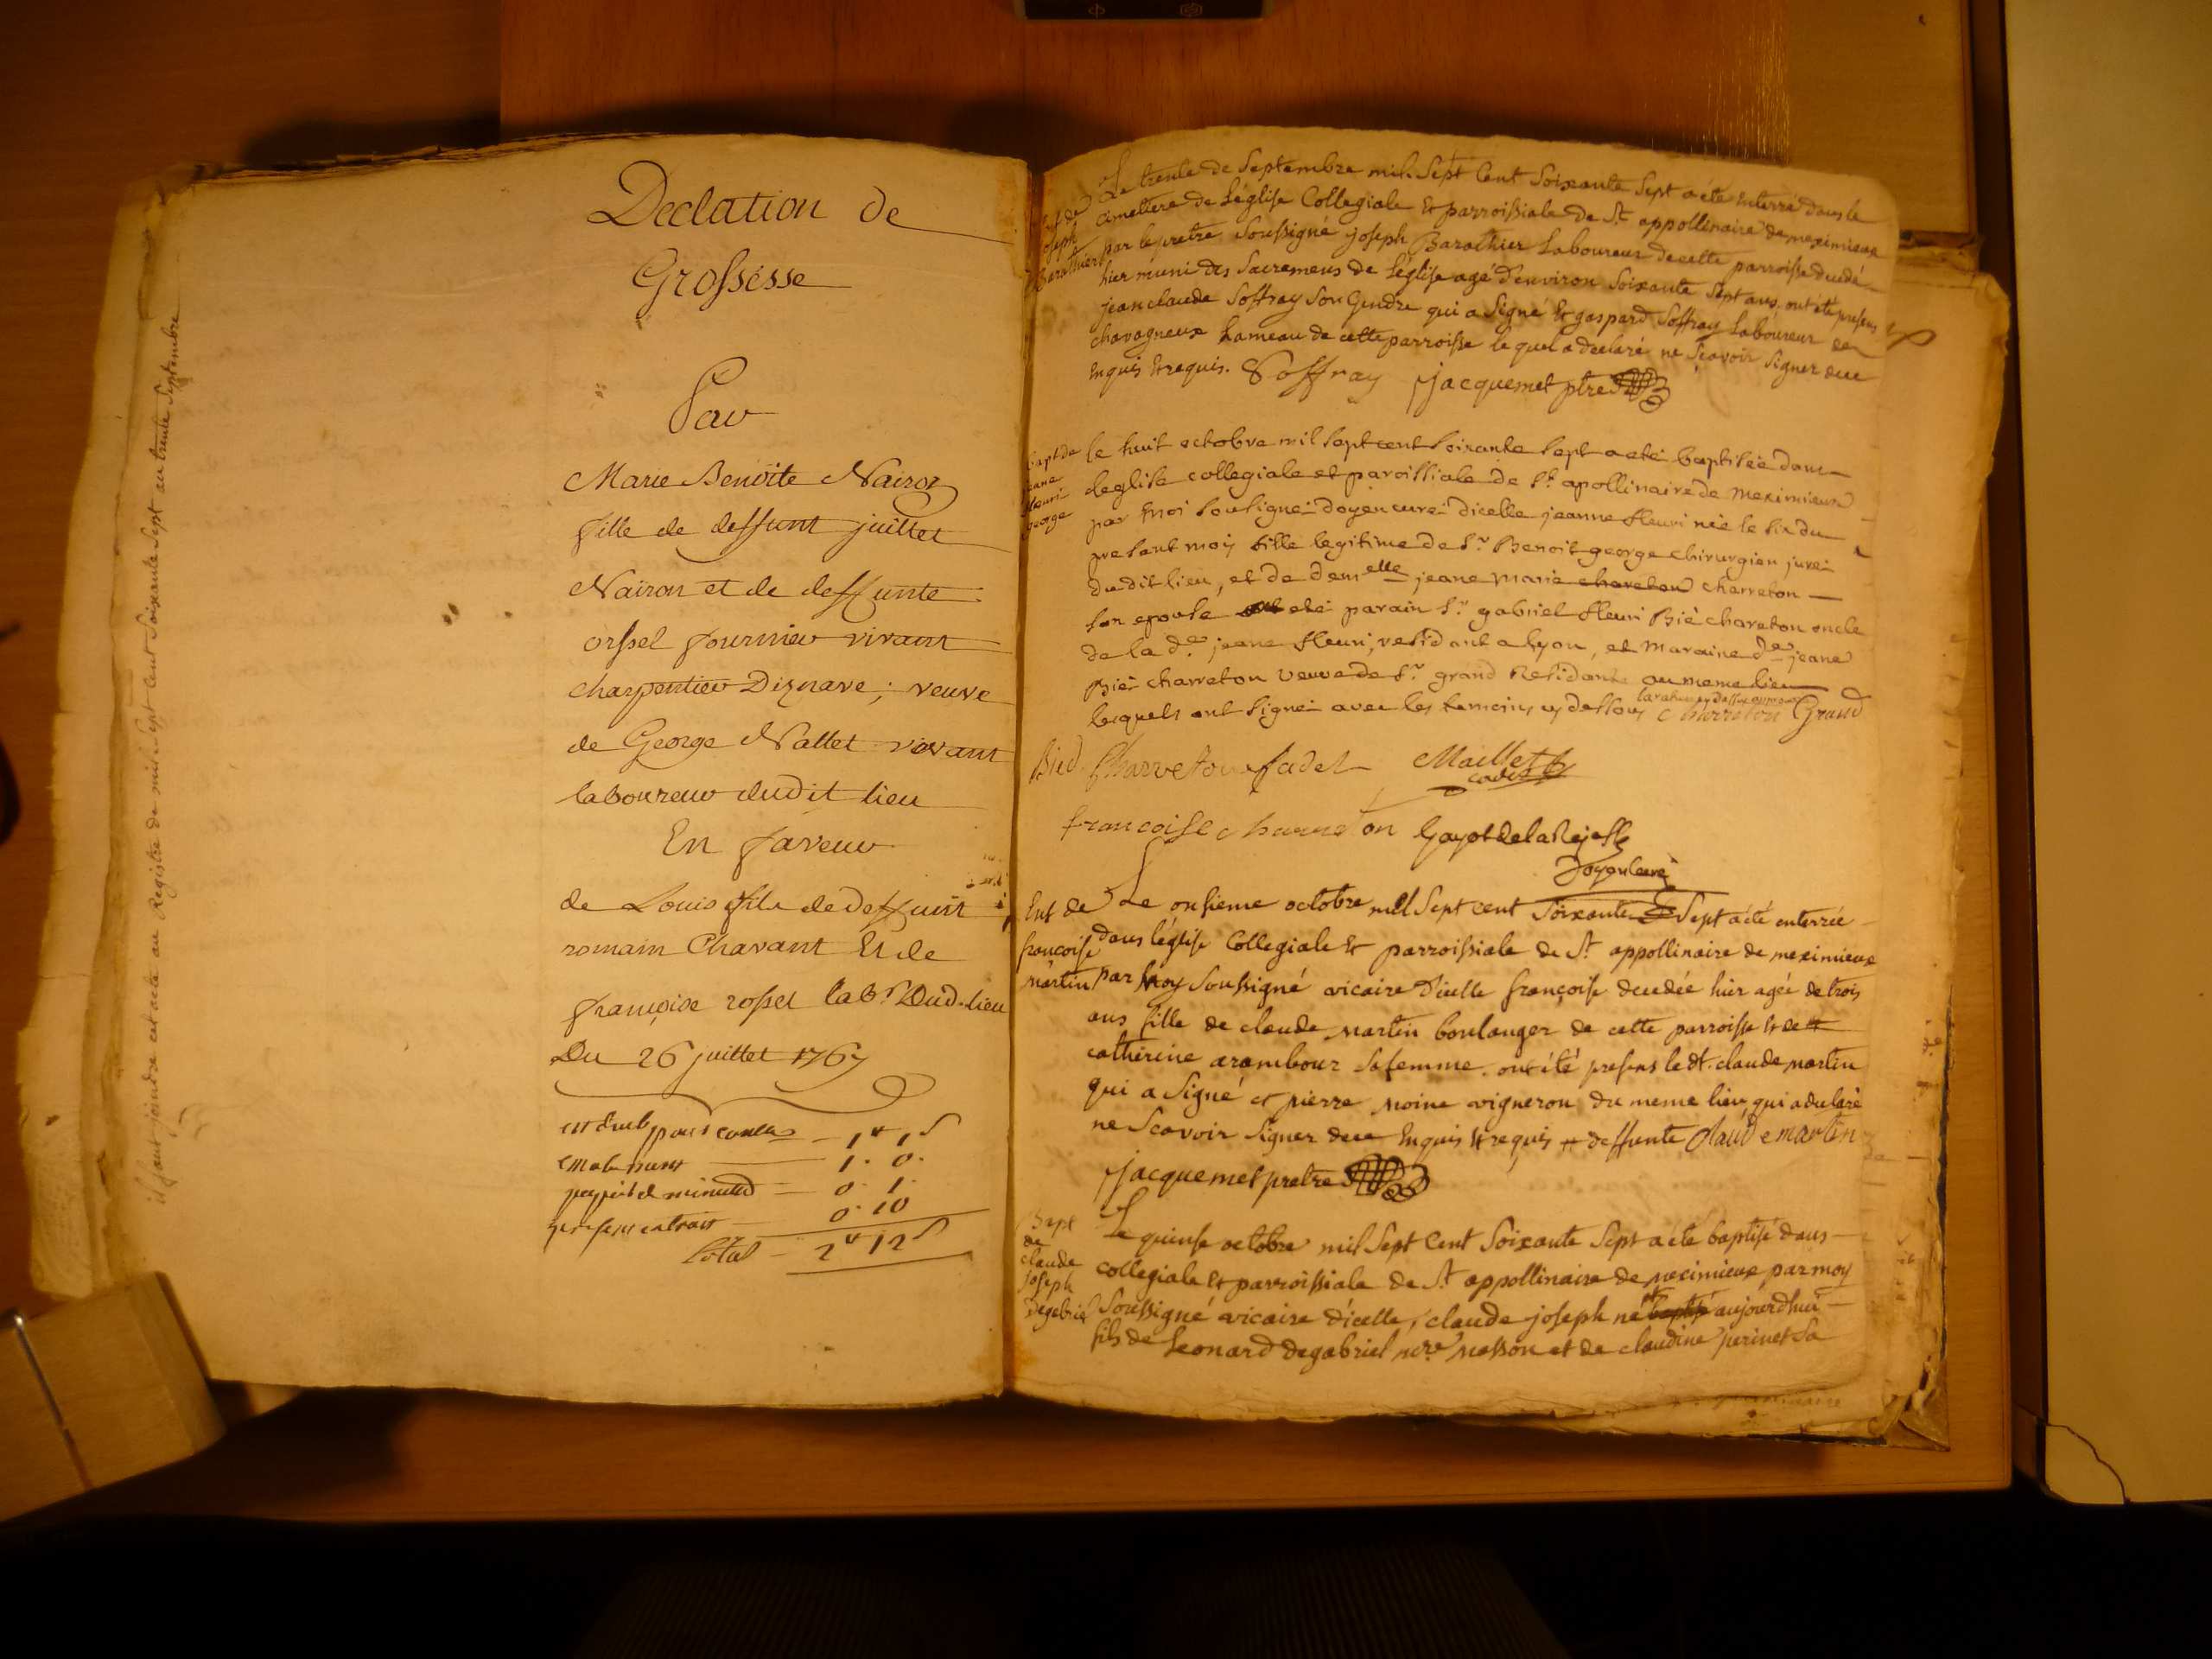 Declation de
Grossesse
Par
Marie Benoite Nairon
fille de deffunt juillet
Nairon et de deffunte
orssel fournier vivant
charpentier Diznave; veuve
de George Nallet vivant
laboureur dudit lieu
En faveur
de Louis fils de deffunt
romain Chavant Et de
françoise rosset labr Dud. lieu
Du 26 juillet 1767
Total - 2# 12s
il faut joindre cet acte au Registre de mil Sept Cent Soixante Sept au trente Septembre
Joseph
Barathier
Le trente de Septembre mil Sept Cent Soixante Sept a été Enterré dans le
Cimetiere de l'église Collegiale Et parroissiale de St appollinaire de meximieux
par le pretre Soussigné joseph Barathier Laboureur de cette parroisse decedé
hier muni des Sacremens de l'église agé d'environ Soixante Sept ans, ont été presens
jean claude Soffray Son Gendre qui a Signé Et gaspard Soffray Laboureur de
chavagneux hameau de cette parroisse le quel a declaré ne Scavoir Signer de ce
Enquis Et requis. Soffray jacquemet ptre
bapt de
jeane
fleuri
george
le huit octobre mil sept cent soixante sept a eté baptisée dans
leglise collegiale et paroissiale de St apollinaire de meximieux
par moi sousigné doyen curé dicelle jeanne fleuri née le six du
present mois fille legitime de Sr Benoit george chirurgien juré
dudit lieu, et de demelle jeane marie chareton charreton
son epouse ont eté parain Sr gabriel fleuri Bié chareton oncle
de la de jeane fleuri, residant a lyon, et maraine de jeane
Bié charreton veuve de Sr grand Residante au meme lieu
lesquels ont signé avec les temoins cy dessous Charreton Grand
Bied Charreton fadet Maillet
cadet
francoise charreton Gayot de la Rejasse
Doyen Curé
Ent de
françoise
martin
Le onsieme octobre mil Sept cent Soixante Sept a été enterrée
dans l'église Collegiale Et parroissiale de St appollinaire de meximieux
par moy Soussigné vicaire d'icelle françoise decedée hier agée de trois
ans fille de claude martin boulanger de cette parroisse et de #
catherine arambour Sa femme. ont été presens le dt. claude martin
qui a Signé et pierre moine vigneron du meme lieu, qui a declaré
ne Scavoir Signer de ce Enquis Et requis # deffunte Claude martin
jacquemet pretre
Bapt
de
claude
joseph
Degabriel
Le quinse octobre mil Sept Cent Soixante Sept a été baptisé dans
collegiale Et parroissiale de St appollinaire de meximieux par moy
Soussigné vicaire d'icelle, claude joseph né baptisé aujourdhui
fils de Leonard degabriel mre masson et de claudine perinet Sa